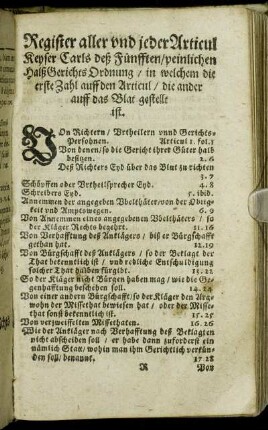 Register aller vnd jeder Articul
Keyser Carls deß Fünfften/peinlichen
HalßGerichts Ordnung / in welchem die
erste Zahl auff den Articul / die ander
auff das Blat gestellt
ist.
VOn Richtern / Vrtheilern vnnd Gerichts-
Persohnen. Articul 1. fol. 1
Von denen / so die Gericht jhrer Güter halb
besitzen. 2. 6
Deß Richters Eyd über das Blut zu richten
3. 7
Schöpffen oder Vrtheilsprecher Eyd. 4. 8
Schreibers Eyd. 5. ibid.
Annemmen der angegeben Vbelthäter / von der Obrig-
keit vnd Amptswegen. 6. 9
Von Annemmen eines angegebnen Vbelthäters / so
der Kläger Rechts begehrt. 11. 16
Von Verhafftung deß Anklägers / biß er Bürgschafft
gethan hat. 12. 19
Von Bürgschafft deß Anklägers / so der Beklagt der
That bekenntlich ist / vnd redliche Entschuldigung
solcher That halben fürgibt. 13. 22
So der Kläger nicht Bürgen haben mag / wie die Ge-
genhafftung beschehen soll. 14. 24
Von einer andern Bürgschafft / so der Kläger den Arg-
wohn der Missethat bewiesen hat / oder der Misse-
that sonst bekenntlich ist. 15. 25
Von vnzweiffelten Missethaten. 16. 26
Wie der Ankläger nach Verhafftung deß Beklagten
nicht abscheiden soll / er habe dann zuforderst ein
nämlich Statt / wohin man jhm Gerichtlich verkün-
den soll / benannt. 17 28
R Von